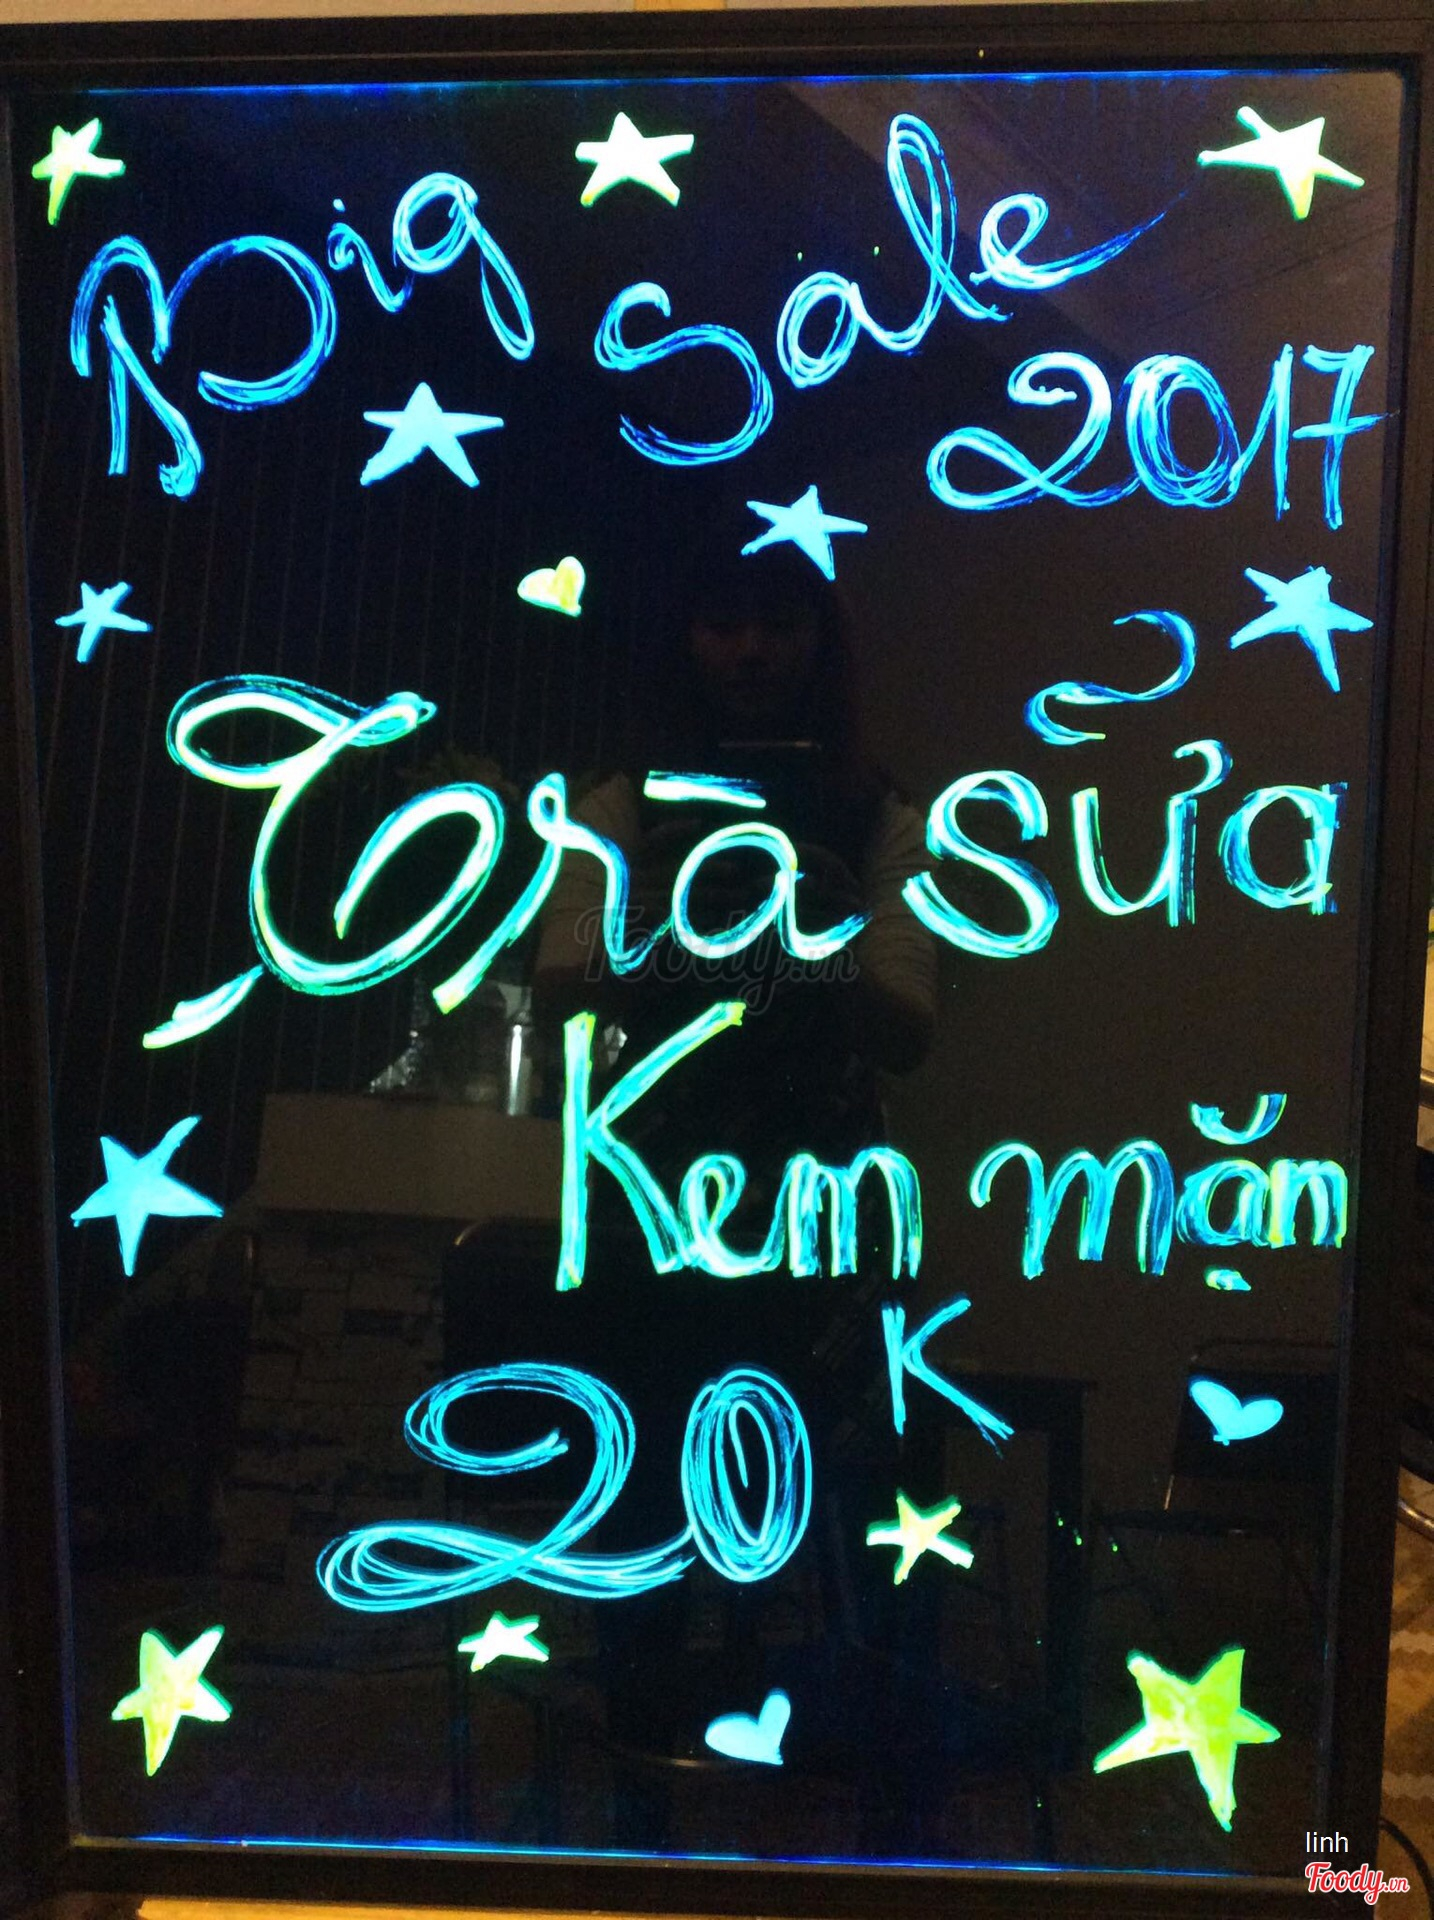 Big Sale
2017
Trà sửa
Kem mặn
20K
Foody.vn
linh
Foody.vn